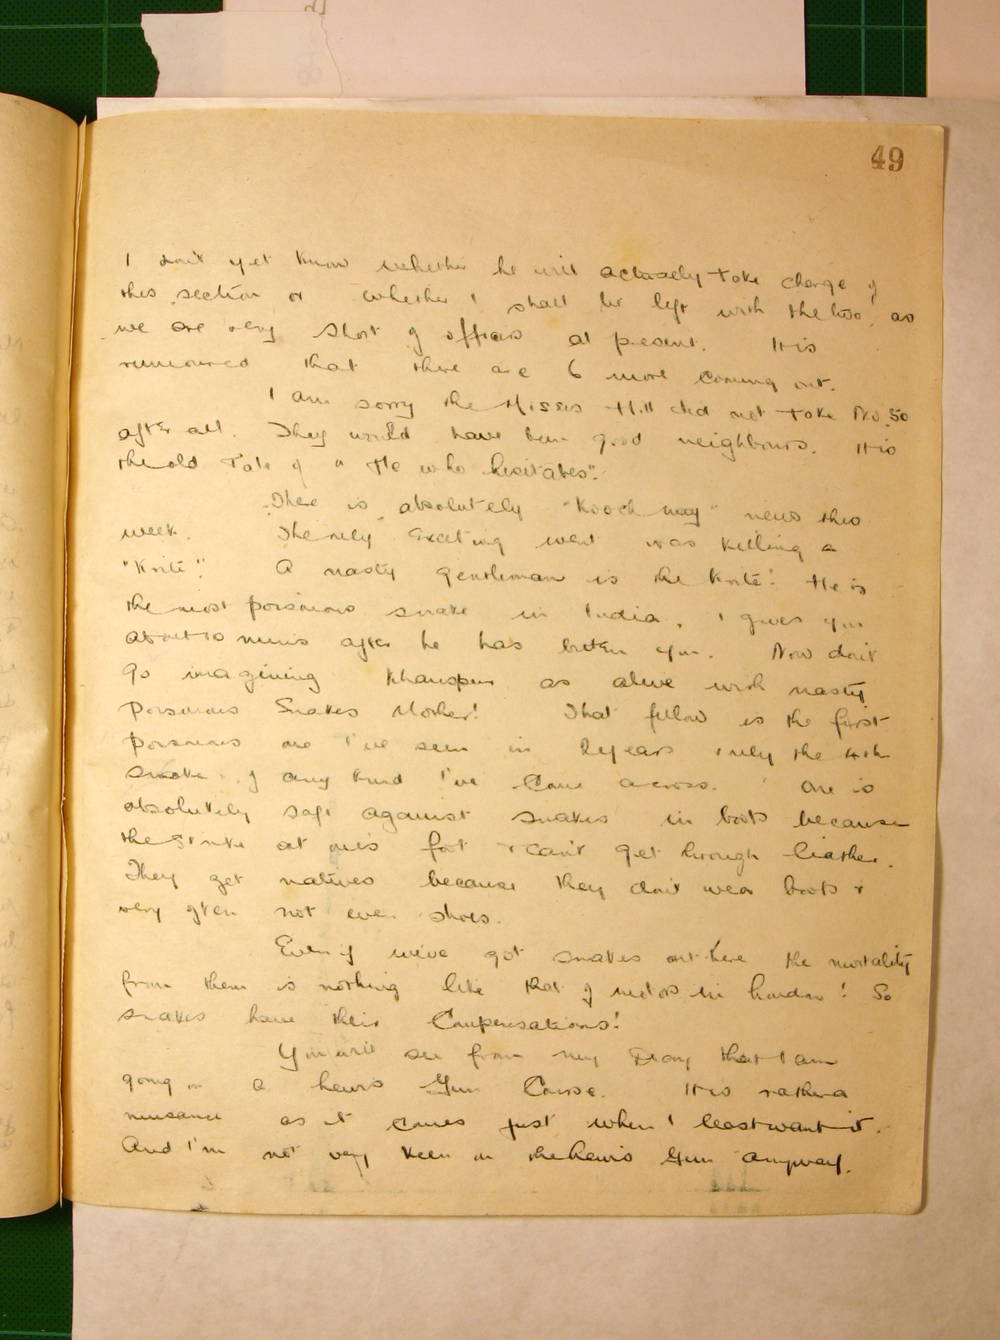 49
I don't yet know whether he will actually take charge of
this section or whether I shall be left with the job as
we are very short of officers at present. It is
rumoured that there are 6 more coming out.
I am sorry the Misses Hill did not take No. 50
after all. They would have been good neighbours. It is
the old Tale of "He who hesitates".
There is absolutely "Kooch nay" news this
week. The only exciting event was killing a
"Krite". A nasty gentleman is the Krite. He is
the most poisonous snake in India, & gives you
about 10 mins after he has bitten you. Now don't
go imagining Khanspur as alive with nasty
poisonous Snakes Mother! That fellow is the first
poisonous one I've seen in 2 years & only the 4th
snake of any kind I've come across. One is
absolutely safe against snakes in boots because
they strike at one's foot & can't get through leather.
They get natives because they don't wear boots &
very often not even shoes.
Even if we've got snakes out here the mortality
from them is nothing like that of motors in London! So
snakes have their compensations!
You will see from my Diary that I am
going on a Lewis Gun Course. It is rather a
nuisance as it comes just when I least want it.
And I'm not very keen on the Lewis Gun anyway.